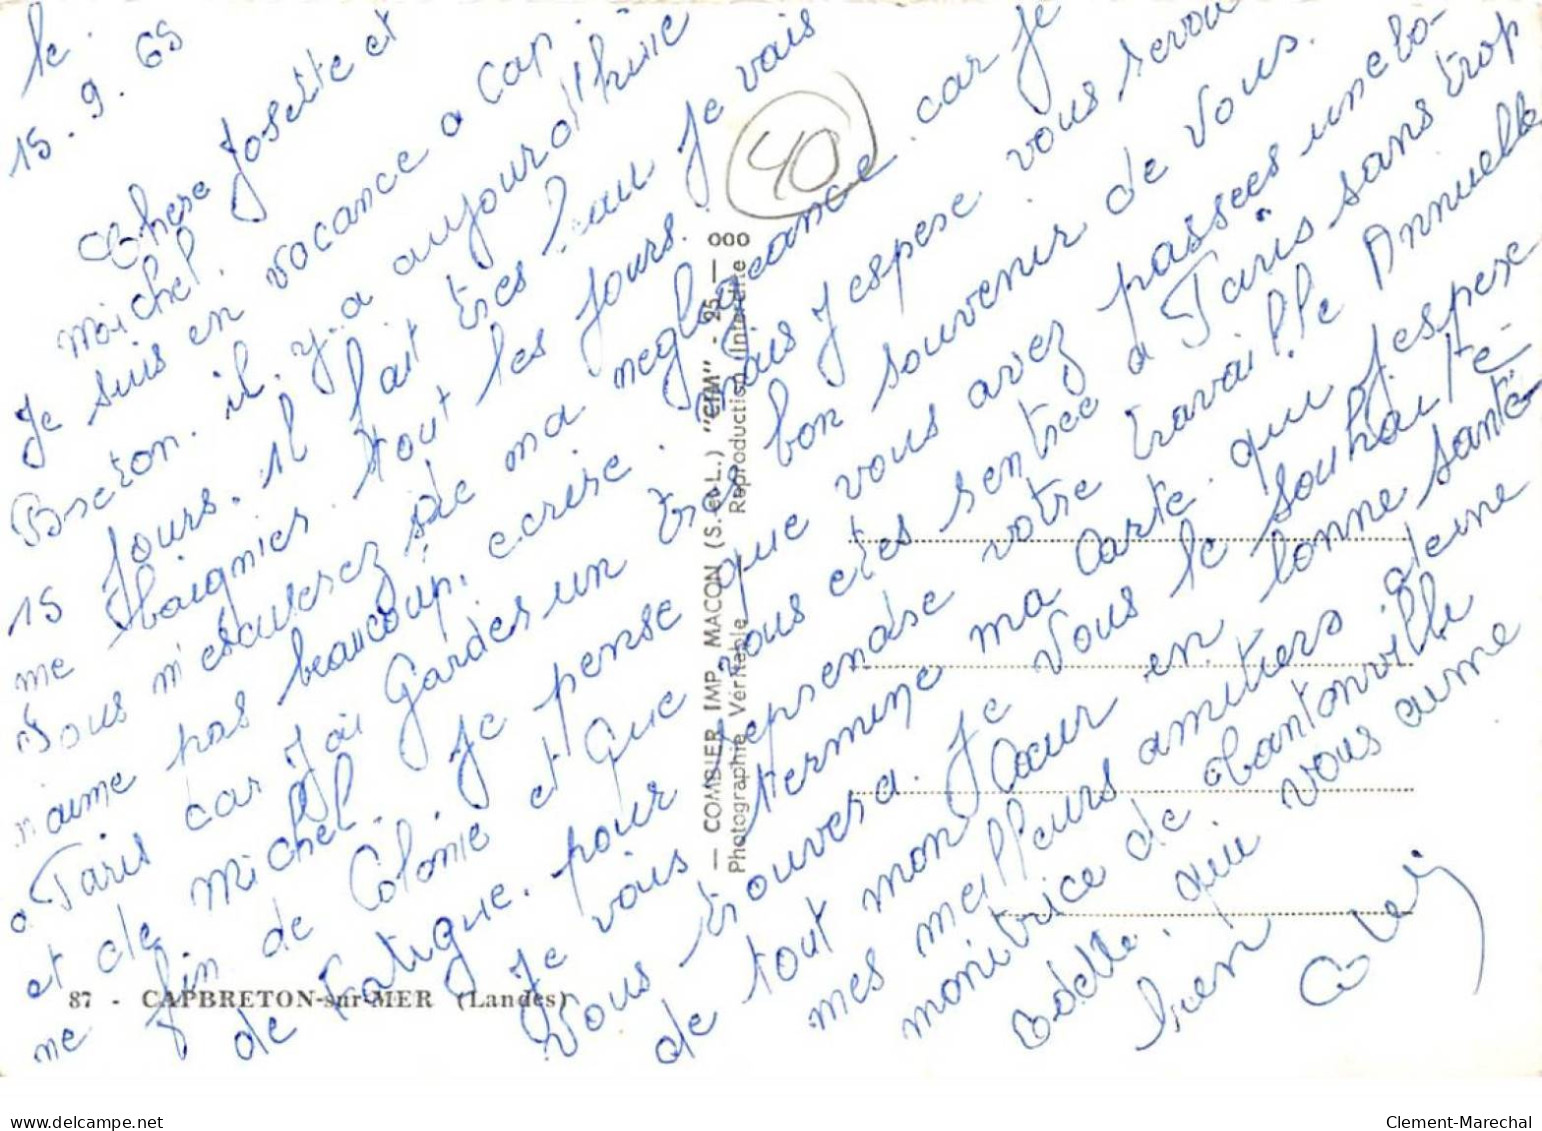 le.
15.9.65
Chere Josette et
Michel.
Je suis en vacance a Cap.
Breton. il. y.a aujourd'huie
15 Jours. il fait très beau Je vais
me baignier. tout les Jours.
Vous m'escuserez de ma neglageance. car Je
n'aime pas beaucoup. ecrire. mais J'espere vous revoir
a Paris car J'ai Gardes un très bon souvenir de Vous.
et de Michel. Je pense que vous avez passees une bo-
ne fin de Colonie et Que vous etes rentree a Paris sans trop
de Fatigue. pour reprendre votre travaille Annuelle
Je vais termine ma Carte. qui J'espere
Vous trouvera. Je Vous le souhaite
de tout mon Cœur en bonne santé
mes meilleurs amitiers d'une
monitrice de Chantonville
Odette. qui vous aime
bien
40
— COMBIER IMP. MACON (S.-et-L.) "CIM" - 25 — OOO
Photographie Véritable Reproduction Interdite
87 - CAPBRETON-sur-MER (Landes)
www.delcampe.net
Clement-Marechal